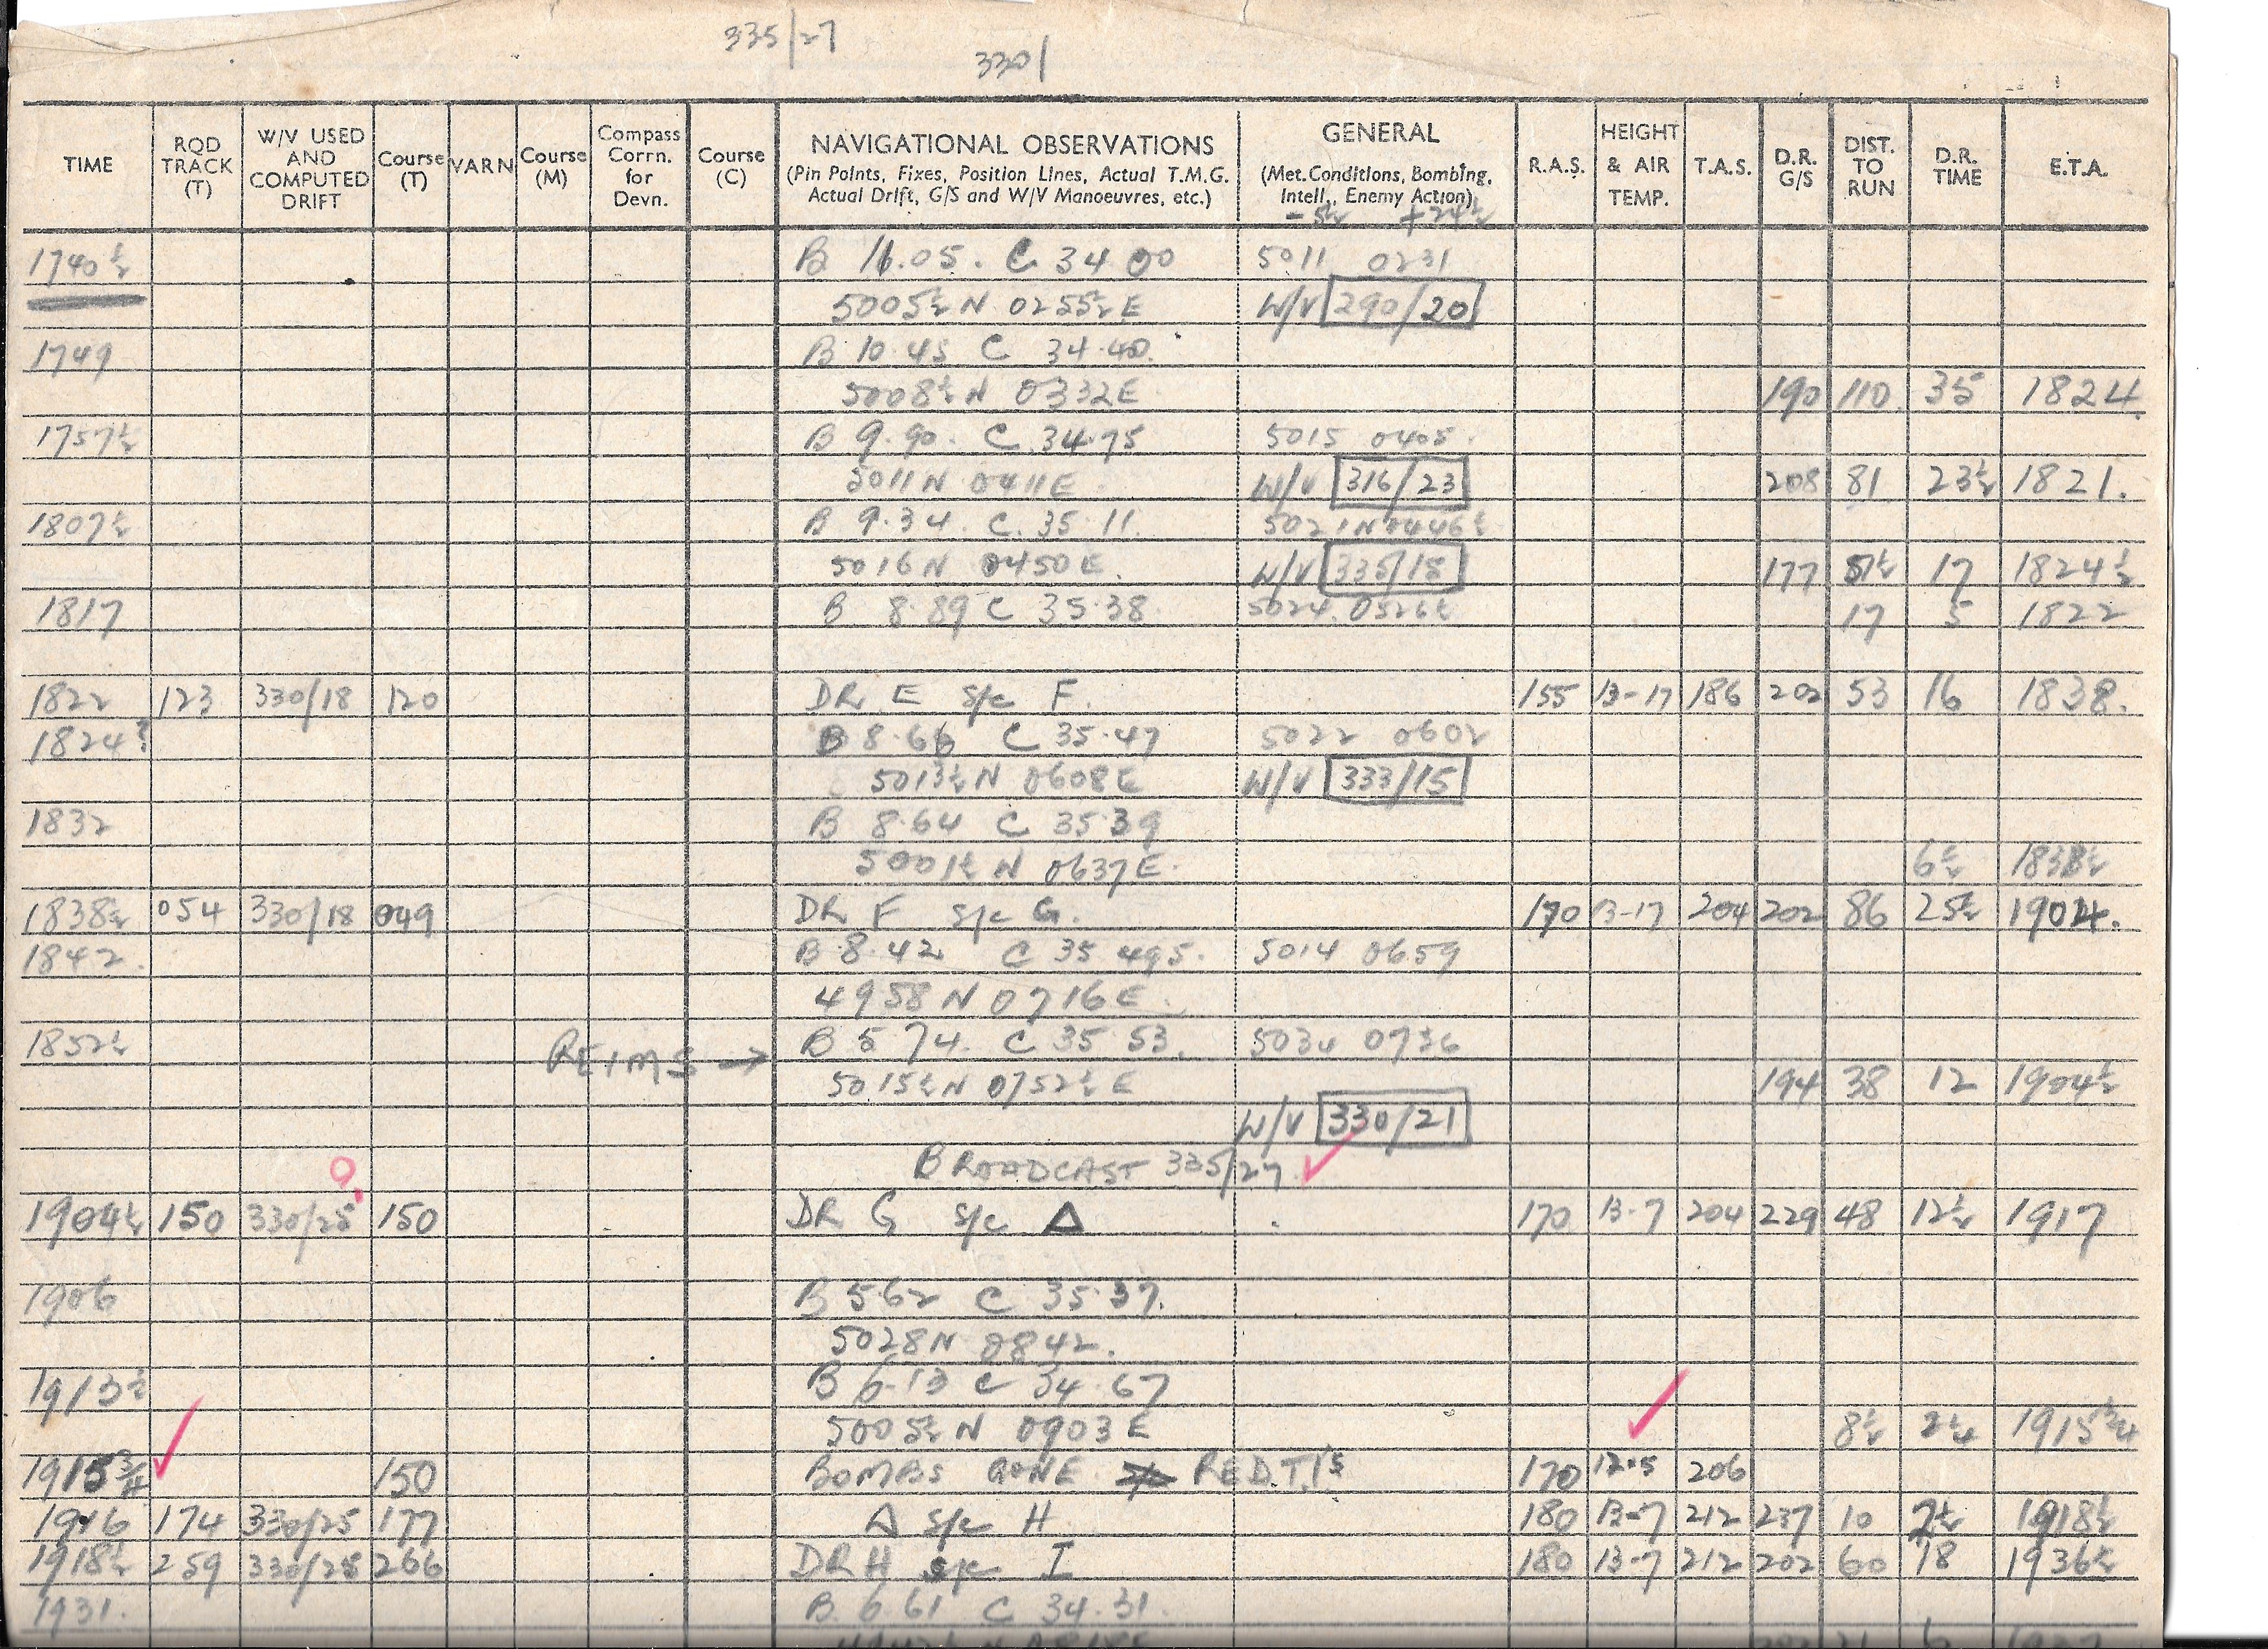 335/27
330/
TIME RQD TRACK (T) W/V USED AND COMPUTED DRIFT Course (T) VARN Course (M) Compass Corrn. for Devn. Course (C) NAVIGATIONAL OBSERVATIONS (Pin Points, Fixes, Position Lines, Actual T.M.G. Actual Drift, G/S and W/V Manoeuvres, etc.) GENERAL (Met. Conditions, Bombing, Intell., Enemy Action) R.A.S. HEIGHT & AIR TEMP. T.A.S. D.R. G/S DIST. TO RUN D.R. TIME E.T.A.
-5½ +24½
1740½ B 11.05. C 34.00 5011 0231
5005½N 0255½E W/V 290/20
1749 B 10.45 C 34.40
5008½N 0332E 190 110 35 1824
1757½ B 9.90. C 34.75 5015 0405.
5011N 0411E W/V 316/23 208 81 23½ 1821.
1807½ B 9.34. C. 35.11. 5021N 0446½
5016N 0450E. W/V 335/18 177 51½ 17 1824½
1817 B 8.89 C 35.38. 5024. 0526½ 17 5 1822
1822 123 330/18 120 DR E S/c F. 155 13-17 186 202 53 16 1838.
1824? B 8.66 C 35.47 5022 0602
5013½N 0608E W/V 333/15
1832 B 8.64 C 35.39
5001½N 0637E. 6½ 1838½
1838½ 054 330/18 049 DR F S/c G. 170 13-17 204 202 86 25½ 1904.
1842. B 8.42 C 35.495. 5014 0659
4958N 0716E.
1852½ REIMS → B 5.74. C 35.53. 5034 0736
5015½N 0752½E 194 38 12 1904½
W/V 330/21
BROADCAST 335/27.
1904½ 150 330/25 150 DR G S/c Δ 170 13-7 204 229 48 12½ 1917
1906 B 5.62 C 35.37.
5028N 0842.
1913½ B 6.13 C 34.67
5005½N 0903E 8½ 2¼ 1915¾
1915¾ 150 BOMBS GONE RED.T.I's 170 12.5 206
1916 174 330/25 177 Δ S/c H 180 13-7 212 237 10 2½ 1918½
1918½ 259 330/25 266 DR H S/c I 180 13-7 212 202 60 18 1936½
1931. B 6.61 C 34.31.